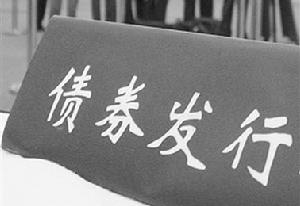 债券发行